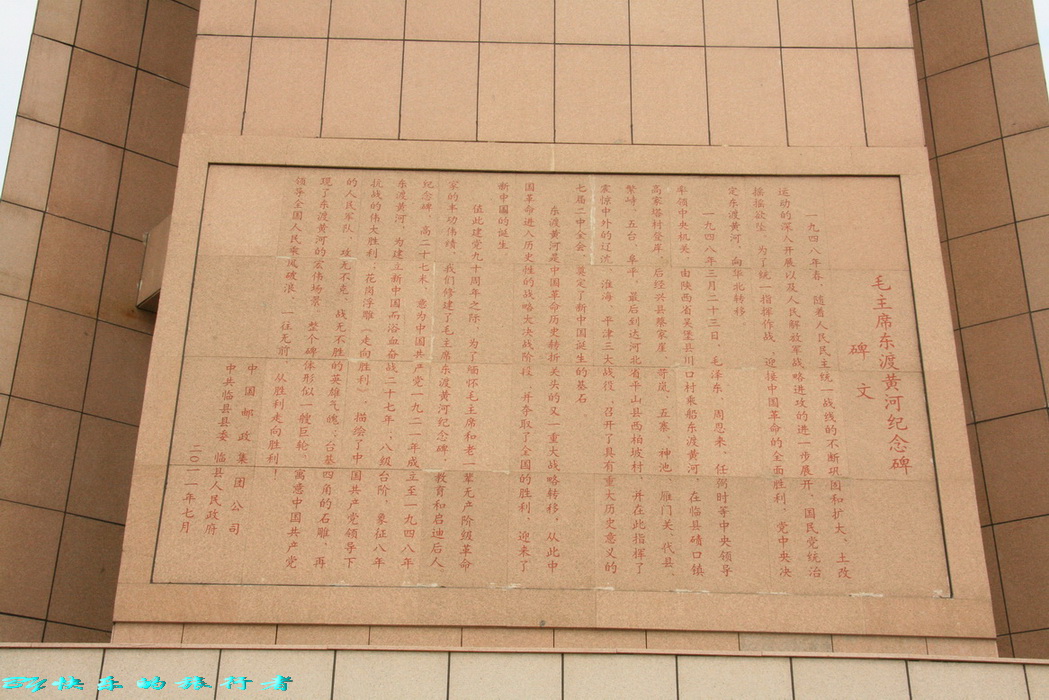 毛主席东渡黄河纪念碑
碑文
一九四八年春，随着人民民主统一战线的不断巩固和扩大，土改
运动的深入开展以及人民解放军战略进攻的进一步展开，国民党统治
摇摇欲坠，为了统一指挥作战，迎接中国革命的全面胜利，党中央决
定东渡黄河，向华北转移
一九四八年三月二十三日，毛泽东、周恩来、任弼时等中央领导
率领中央机关，由陕西省吴堡县川口村乘船东渡黄河，在临县碛口镇
高家塔村登岸，后经兴县蔡家崖、苛岚、五寨、神池、雁门关、代县、
繁峙、五台、阜平，最后到达河北省平山县西柏坡村，并在此指挥了
震惊中外的辽沈、淮海、平津三大战役，召开了具有重大历史意义的
七届二中全会，奠定了新中国诞生的基石
东渡黄河是中国革命历史转折关头的又一重大战略转移，从此中
国革命进入历史性的战略大决战阶段，并夺取了全国的胜利，迎来了
新中国的诞生
值此建党九十周年之际，为了缅怀毛主席和老一辈无产阶级革命
家的丰功伟绩，我们修建了毛主席东渡黄河纪念碑，教育和启迪后人。
纪念碑，高二十七米，意为中国共产党一九二一年成立至一九四八年
东渡黄河，为建立新中国而浴血奋战二十七年，八级台阶，象征八年
抗战的伟大胜利，花岗浮雕（走向胜利）描绘了中国共产党领导下
的人民军队，攻无不克、战无不胜的英雄气魄；台基四角的石雕，再
现了东渡黄河的宏伟场景，整个碑体形似一艘巨轮，寓意中国共产党
领导全国人民乘风破浪 一往无前 从胜利走向胜利！
中国邮政集团公司
中共临县县委 临县人民政府
二〇一一年七月
快乐的旅行者